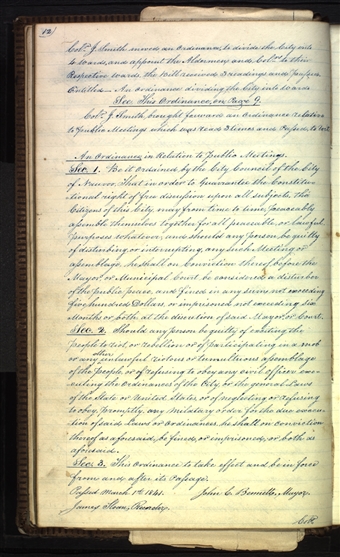 12
Col. J. Smith moved an Ordinance, to divide the City into
4 wards, and appoint the Aldermen, and to their
Respective wards the Bill received 3 readings and passed
Entitled — An Ordinance dividing the City into wards
See. This Ordinance, on Page 9.
J. Smith brought forward an Ordinance relation
to Public Meetings which was Read 3 times and Passed to wit.
An Ordinance, in Relation to Public Meetings.
Sec. 1. Be it Ordained, by the City Council of the City
of Nauvoo, That in order to Guarantee the Constitu-
tional right of free discussion upon all subjects, the
Citizens of this City, may from time to time, peaceably
assemble themselves together for all peaceable, or lawful
purposes whatever, and should any person, be guilty
of disturbing, or interrupting, any such Meeting, or
assemblage, he shall on Conviction thereof before the
Mayor, or Municipal Court, be considered a disturber
of the public peace, and fined in any sum not exceeding
five hundred Dollars, or imprisoned not exceeding Six
Months, or both at the discretion of said Mayor, or Court.
Sec. 2. Should any person be guilty of exciting the
people to riot, or rebellion, or of participating in a mob
or any other unlawful, riotous or tumultuous assemblage
of the people, or of refusing to obey any civil officer, exe-
cuting the Ordinances of the City, or the general Laws
of the State or United States, or of neglecting or refusing
to obey, promptly, any Military order for the due execu-
tion of said Laws or Ordinances, he shall on conviction
thereof as aforesaid, be fined, or imprisoned, or both as
aforesaid.
Sec. 3. This Ordinance to take effect and be in force
from and after its passage.
Passed March 1st 1841. John C. Bennett, Mayor
James Sloan, Recorder.